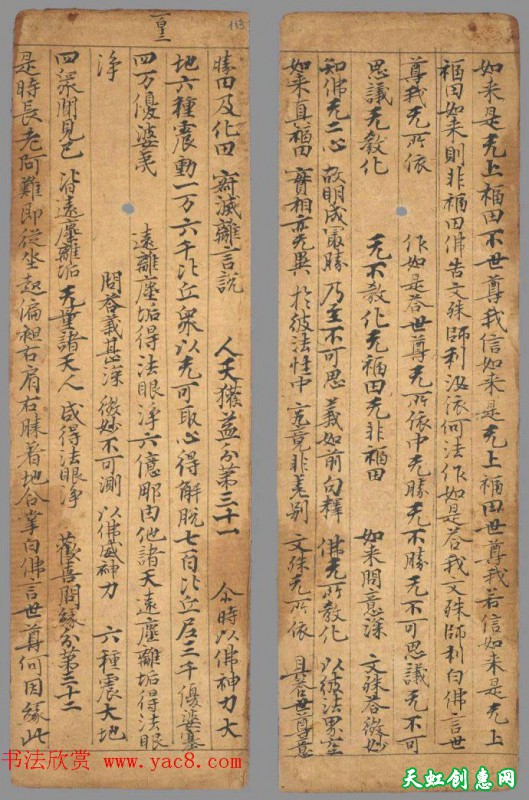 如来是无上福田不世尊我信如来是无上福田世尊我若信如来是无上
福田如来則非福田佛告文殊師利汝依何法作如是荅我文殊師利白佛言世
尊我无所依 作如是荅世尊无所依中无勝无不勝无不可思議无不可
思議无教化 无不教化无福田无非福田 如来問意深 文殊荅微妙
知佛无二心 故明成寂勝 乃至不可思 義如前句釋 佛无所教化 以彼法界空
如来真福田 實相亦无異 於彼法性中 究竟非差别 文殊无所依 具荅世尊意
一皇三
113
勝田及化田 寂滅離言說 人天獲益分第三十一 尒時以佛神力大
地六種震動一万六千比丘衆以无可取心得解脱七百比丘尼三千優婆塞
四万優婆夷 遠離塵垢得法眼浄六億那由他諸天遠塵離垢得法眼
浄 問荅義甚深 微妙不可測 以佛威神力 六種震大地
四衆聞見已 皆遠塵離垢 无量諸天人 咸得法眼浄 歡喜問緣分第三十二
是時長老阿難即從坐起偏袒右肩右膝著地合掌白佛言世尊何因緣此
书法欣赏
www.yac8.com
天虹创惠网